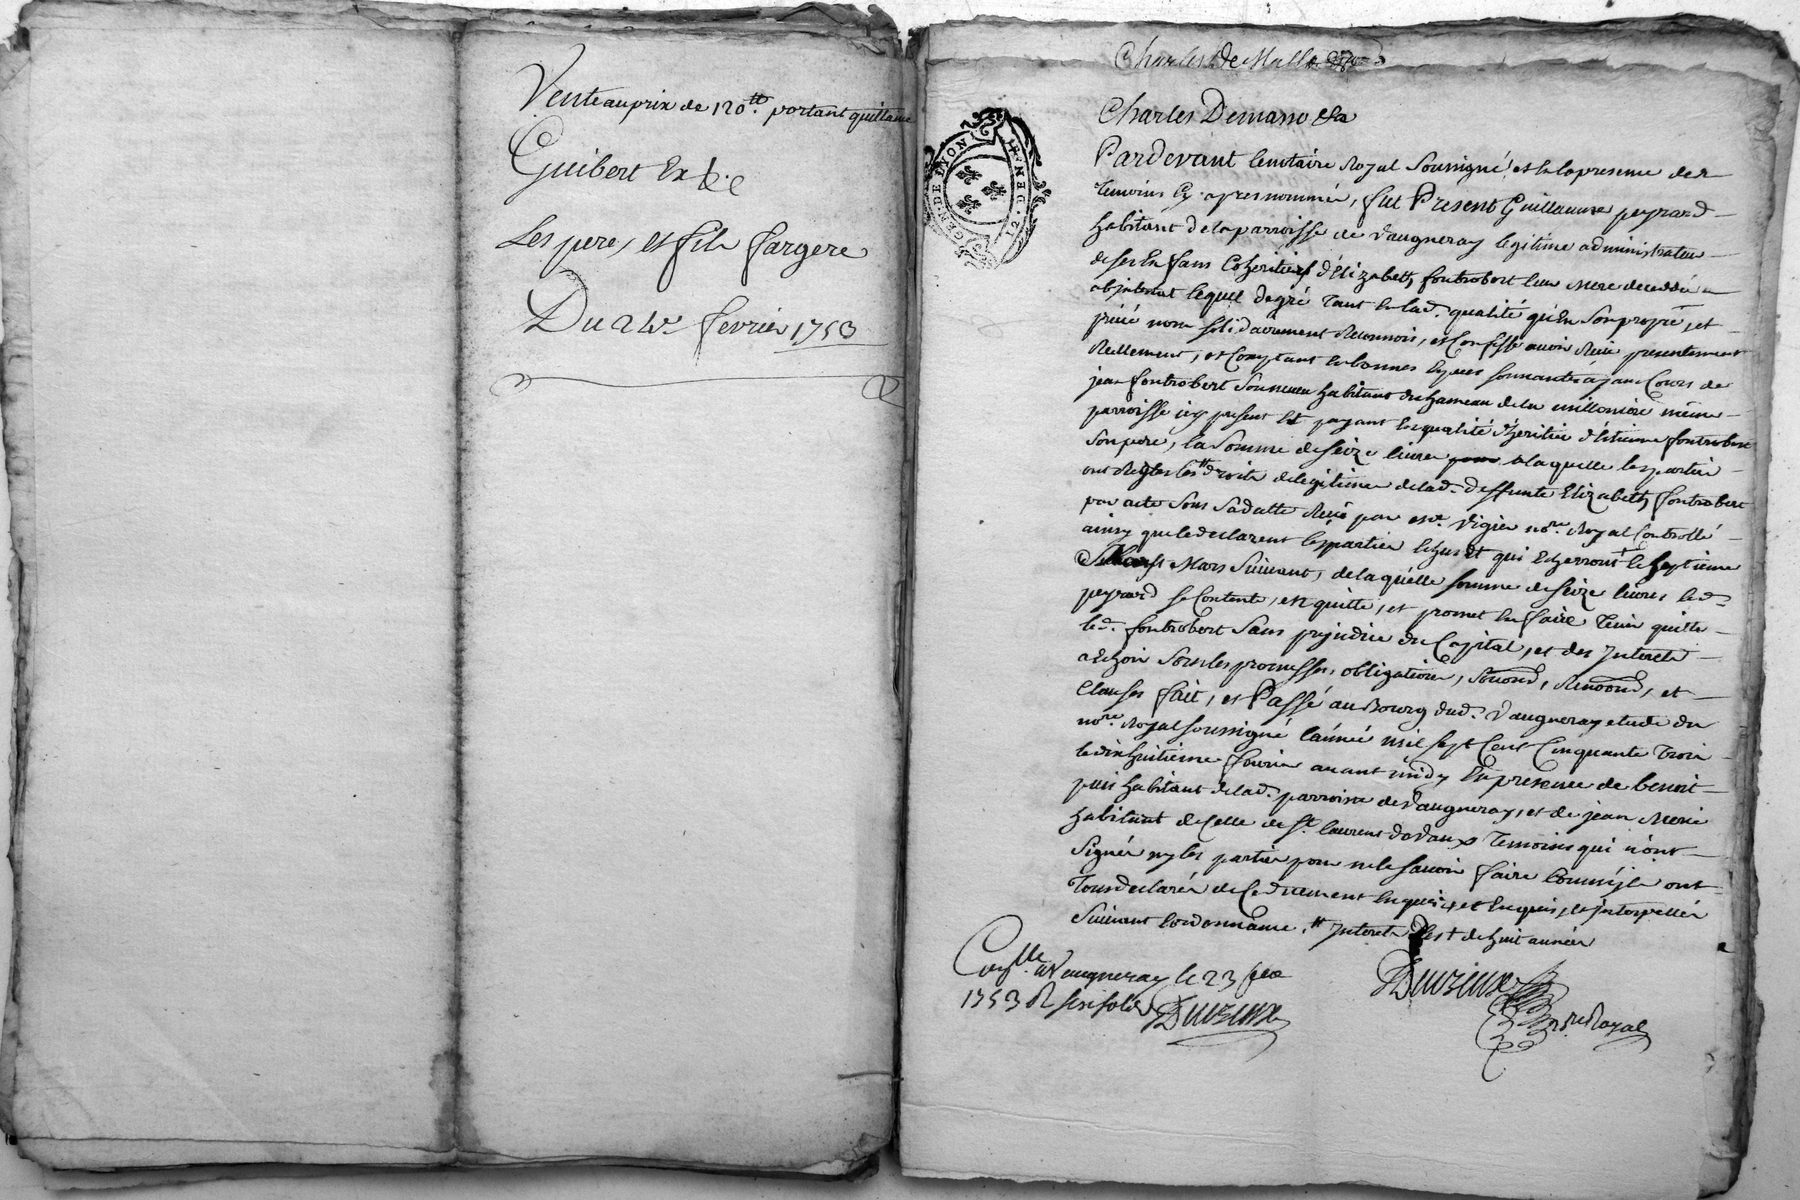 Vente au prix de 120 ₶ portant quittance
Guibert
Les pere, et fils fargere
Du 24e fevrier 1753
Charles De Ma
GEN · DE · LYON
Charles Demasso &a
Pardevant le notaire Royal soussigné et en la presence des
temoins cy apres nommés, fut Present Guillaume peyrard
habitant de la parroisse de Vaugneray legitime administrateur
de ses Enfans Coheritiers d'Elizabeth fontrobert leur Mere decedée
ab jntestat lequel de gré tant en lad. qualité qu'En son propre, et
privé nom solidairement Reconnois, et Confesse avoir Receu presentement
Reellement, et Comptant en bonnes Especes sonnantes ayant Cours de
jean fontrobert son neveu habitant du hameau de la millonierë mème
parroisse icy present et payant En qualité d'heritier d'Etienne fontrobert
son pere, la somme de seize livres a laquelle les parties
ont Reglés les ₶ droits de legitime de lad. deffunte Elizabeth fontrobert
par acte sous sa datte Receu par me. Vigier nore. Royal Controllé
ainsy que le declarent les parties Echus et qui Echerront le septieme
Mars suivant, de laquelle somme de seize livres led.
peyrard se Contente, en quitte, et promet En faire tenir quitte
led. fontrobert sans prejudice du Capital, et des jnterets
a Echoir sous les promesses, obligations, et
Clauses fait, et Passé au Bourg dud. Vaugneray etude du
nore. Royal soussigné l'année mil sept Cent Cinquante trois
le dix huitieme fevrier avant midy En presence de benoit
puis habitant de lad. parroisse de Vaugneray, et de jean
habitant de Celle de St. laurent de Vaux temoins qui n'ont
signés ny les parties pour ne le savoir faire Comm'jls ont
tous declarés de Ce duement Enquis, et jnterpellés
suivant l'ordonnance. ₶ jnterets de huit années
Conlle. a Vaugneray le 23 fev
1753 R six sols Duvzieux
Duvzieux
nore Royal